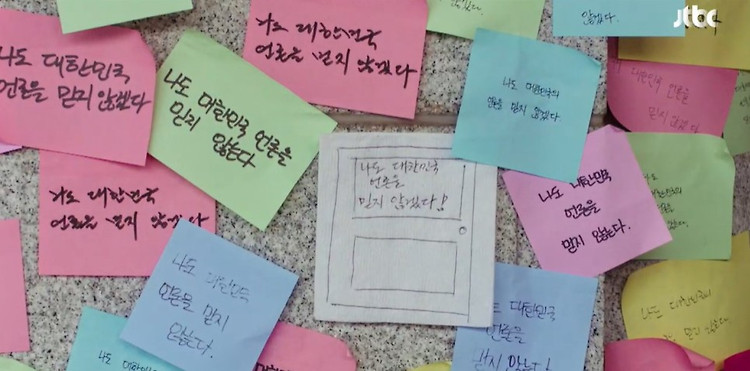 않는다.
않겠다.
jtbc
나도 대한민국
언론을 믿지 않겠다
나도 대한민국
언론을 믿지 않겠다
나도 대한민국 언론을
믿지 않는다
나도 대한민국의
언론을 믿지 않겠다.
나도 대한민국
언론을
믿지 않겠다!
나도 대한민국
언론을 믿지 않겠다
나도 대한민국
언론을
믿지 않는다.
나도 대한민국
언론을 믿지
않는다.
나도 대한민국
언론을
믿지 않는다
나도 대한민국
믿지 않는다.
나도 대한민국